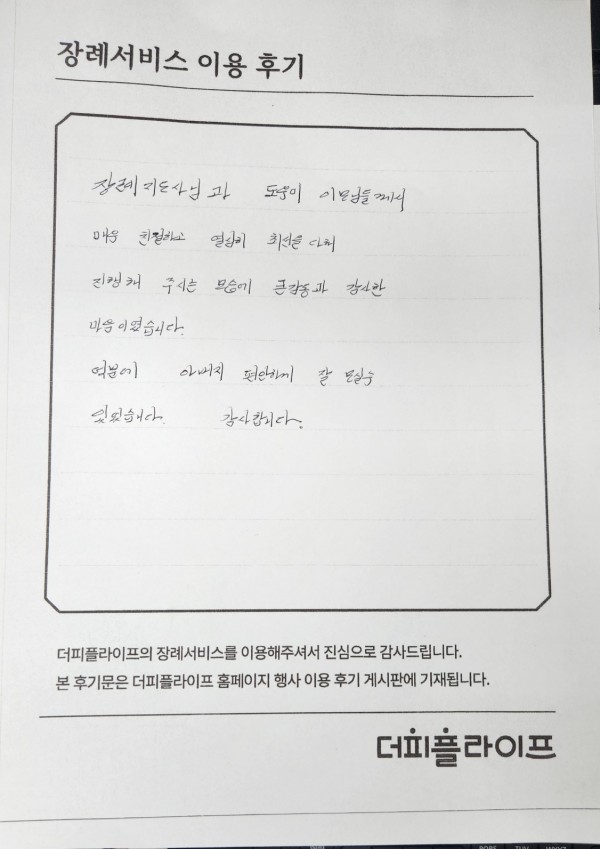 장례서비스 이용 후기
장례지도사님과 도우미 이모님들께서
매우 친절하고 열심히 최선을 다해
진행해 주시는 모습에 큰감동과 감사한
마음이였습니다.
덕분에 아버지 편안하게 잘 모실수
있었습니다. 감사합니다.
더피플라이프의 장례서비스를 이용해주셔서 진심으로 감사드립니다.
본 후기문은 더피플라이프 홈페이지 행사 이용 후기 게시판에 기재됩니다.
더피플라이프